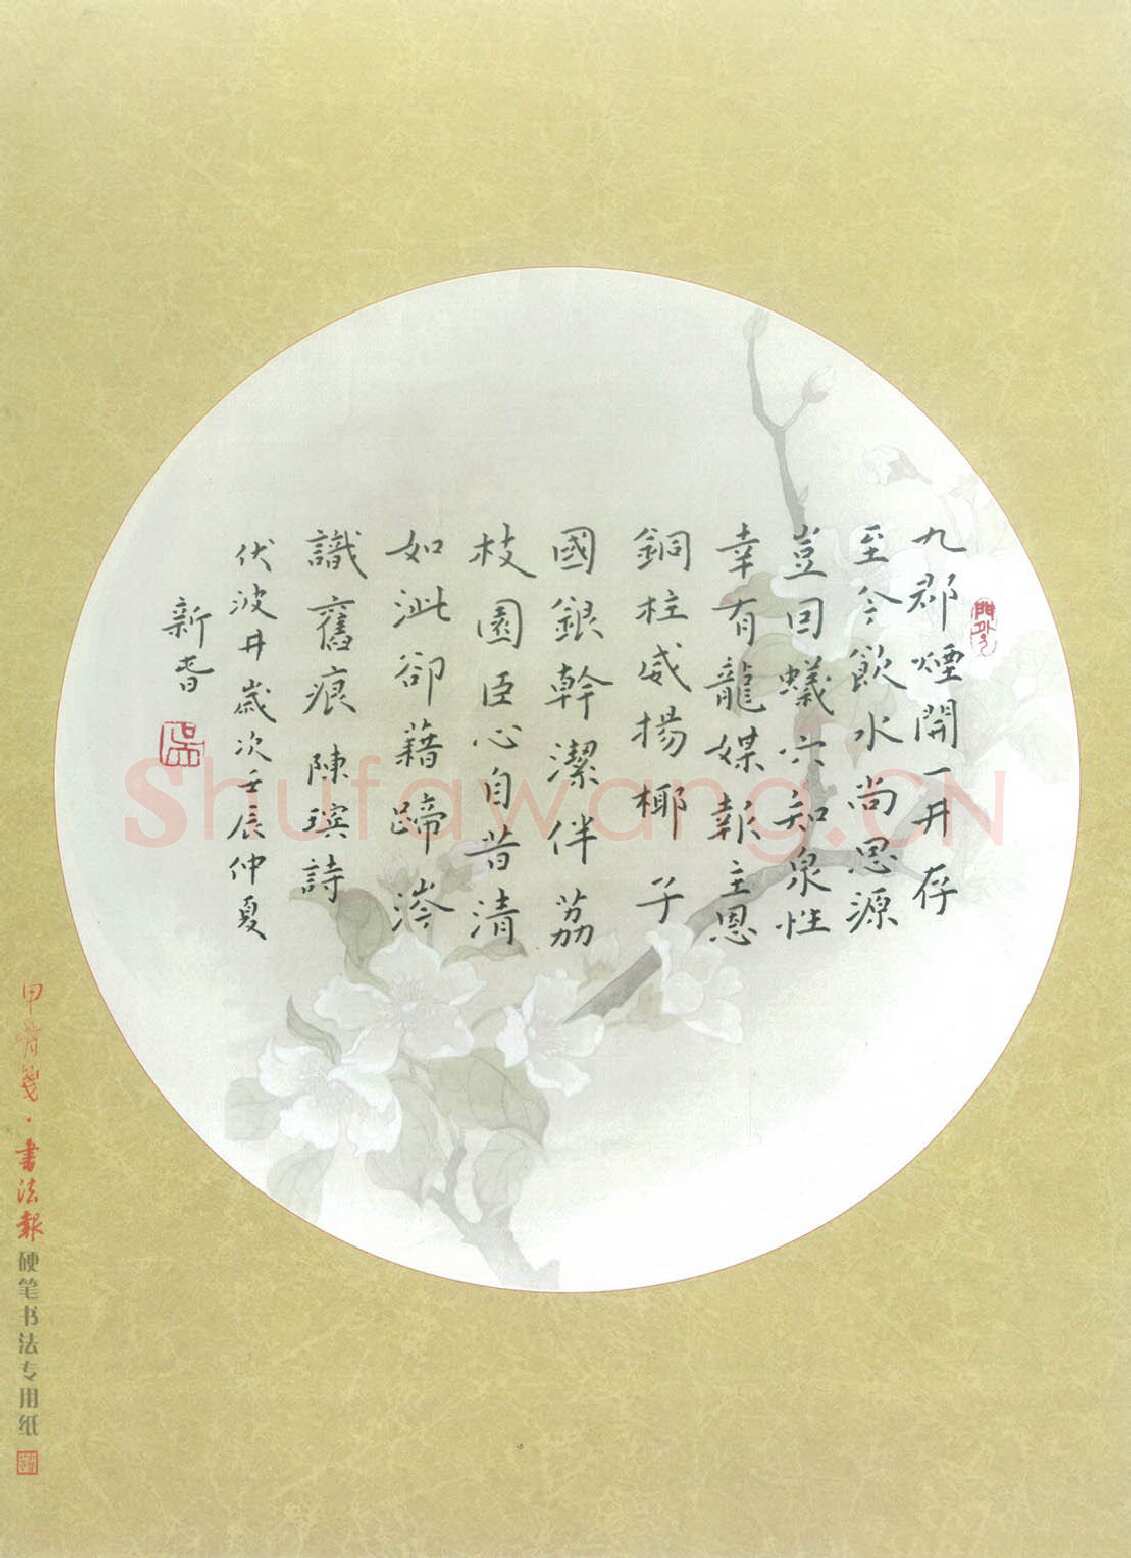 九郡煙開一井存
至今飲水尚思源
豈因蟻穴知泉性
幸有龍媒報主恩
銅柱威揚椰子
國銀幹潔伴荔
枝園臣心自昔清
如泚卻藉蹄涔
識舊痕 陳璸詩
伏波井歲次壬辰仲夏
新春
甲骨箋·書法報
硬笔书法专用纸
Shufawang.CN